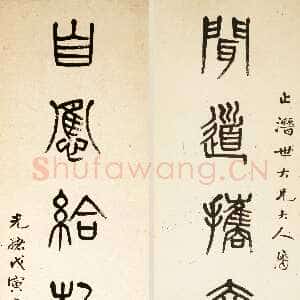 止潛世大兄大人屬
聞道攜
自應給
光緒戊寅
Shufawang.CN